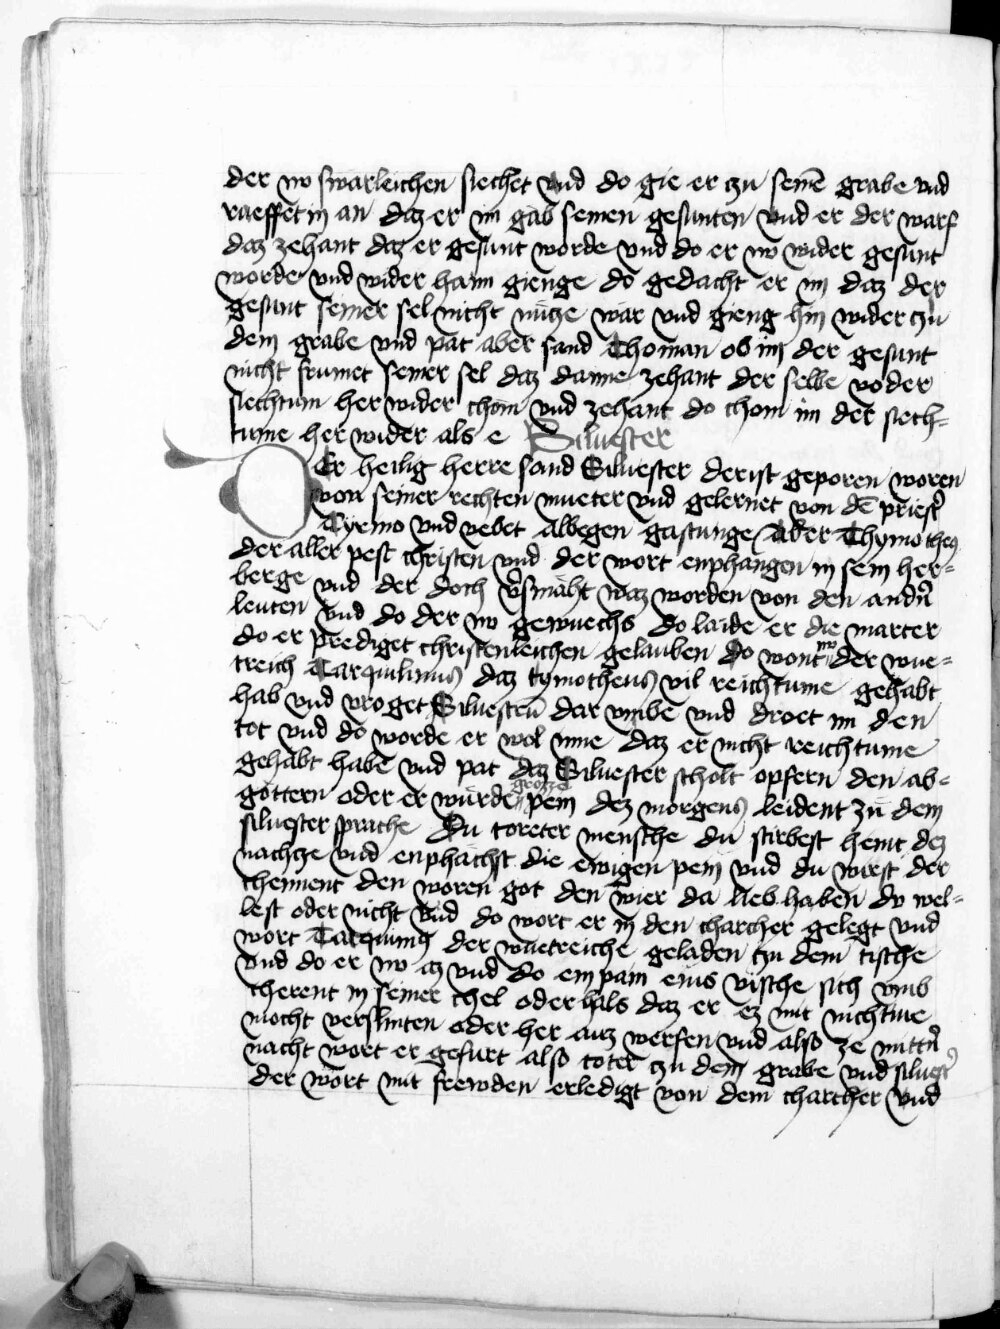 der nw swarleichen siechet vnd do gie er czu seinē grabe vnd
rueffet in an daz er im gab seinen gesunten vnd er der warf
daz zehant daz er gesunt worde vnd do er nw wider gesunt
worde vnd wider haim gienge do gedacht er im daz der
gesunt seiner sel nicht nütze wär vnd gieng hin wider czu
dem grabe vnd pat aber sand Thoman ob im der gesunt
nicht frumet seiner sel daz danne zehant der selbe voder
siechtum her wider chom vnd zehant do chom im der siech=
tume her wider als e Siluester
Der heilig herre sand Siluester der ist geporen woren
von seiner rechten mueter vnd gelernet von dē priest̉
Tyrino vnd vebet albegen gastunge Aber Thymotheus
der aller pest christen vnd der wort enphangen in sein her=
berge vnd der doch v̉smäht waz worden von den andn̉
leuten vnd do der nw gewuechs do laide er die marter
do er prediget christenleichen gelauben do wont nw der wue=
treich Tarquilinus daz tymotheus vil reichtume gehabt
hab vnd vroget Siluestrū dar vmbe vnd droet im den
tot vnd do worde er wol inne daz er nicht reichtume
gehabt habe vnd pat daz Siluester scholt opfern den ab=
göttern oder er würde grozze pein dez morgens leident zu dem
siluester sprache Du toreter mensche du stirbest heint dez
nachtze vnd enphächst die ewigen pein vnd du wirst der
chennent den woren got den wier da lieb haben du wel=
lest oder nicht vnd do wort er in den charcher gelegt vnd
wort Tarquinus der wuetreiche geladen czu dem tische
vnd do er nw az vnd do ein pain eins vische sich vmb
cherent in seiner chel oder hals daz er ez mit nichtiue
mocht verslinten oder her auz werfen vnd also ze mittn̉
nacht wort er gefurt also toter czu dem grabe vnd siluest̉
der wort mit frewden erledigt von dem charcher vnd